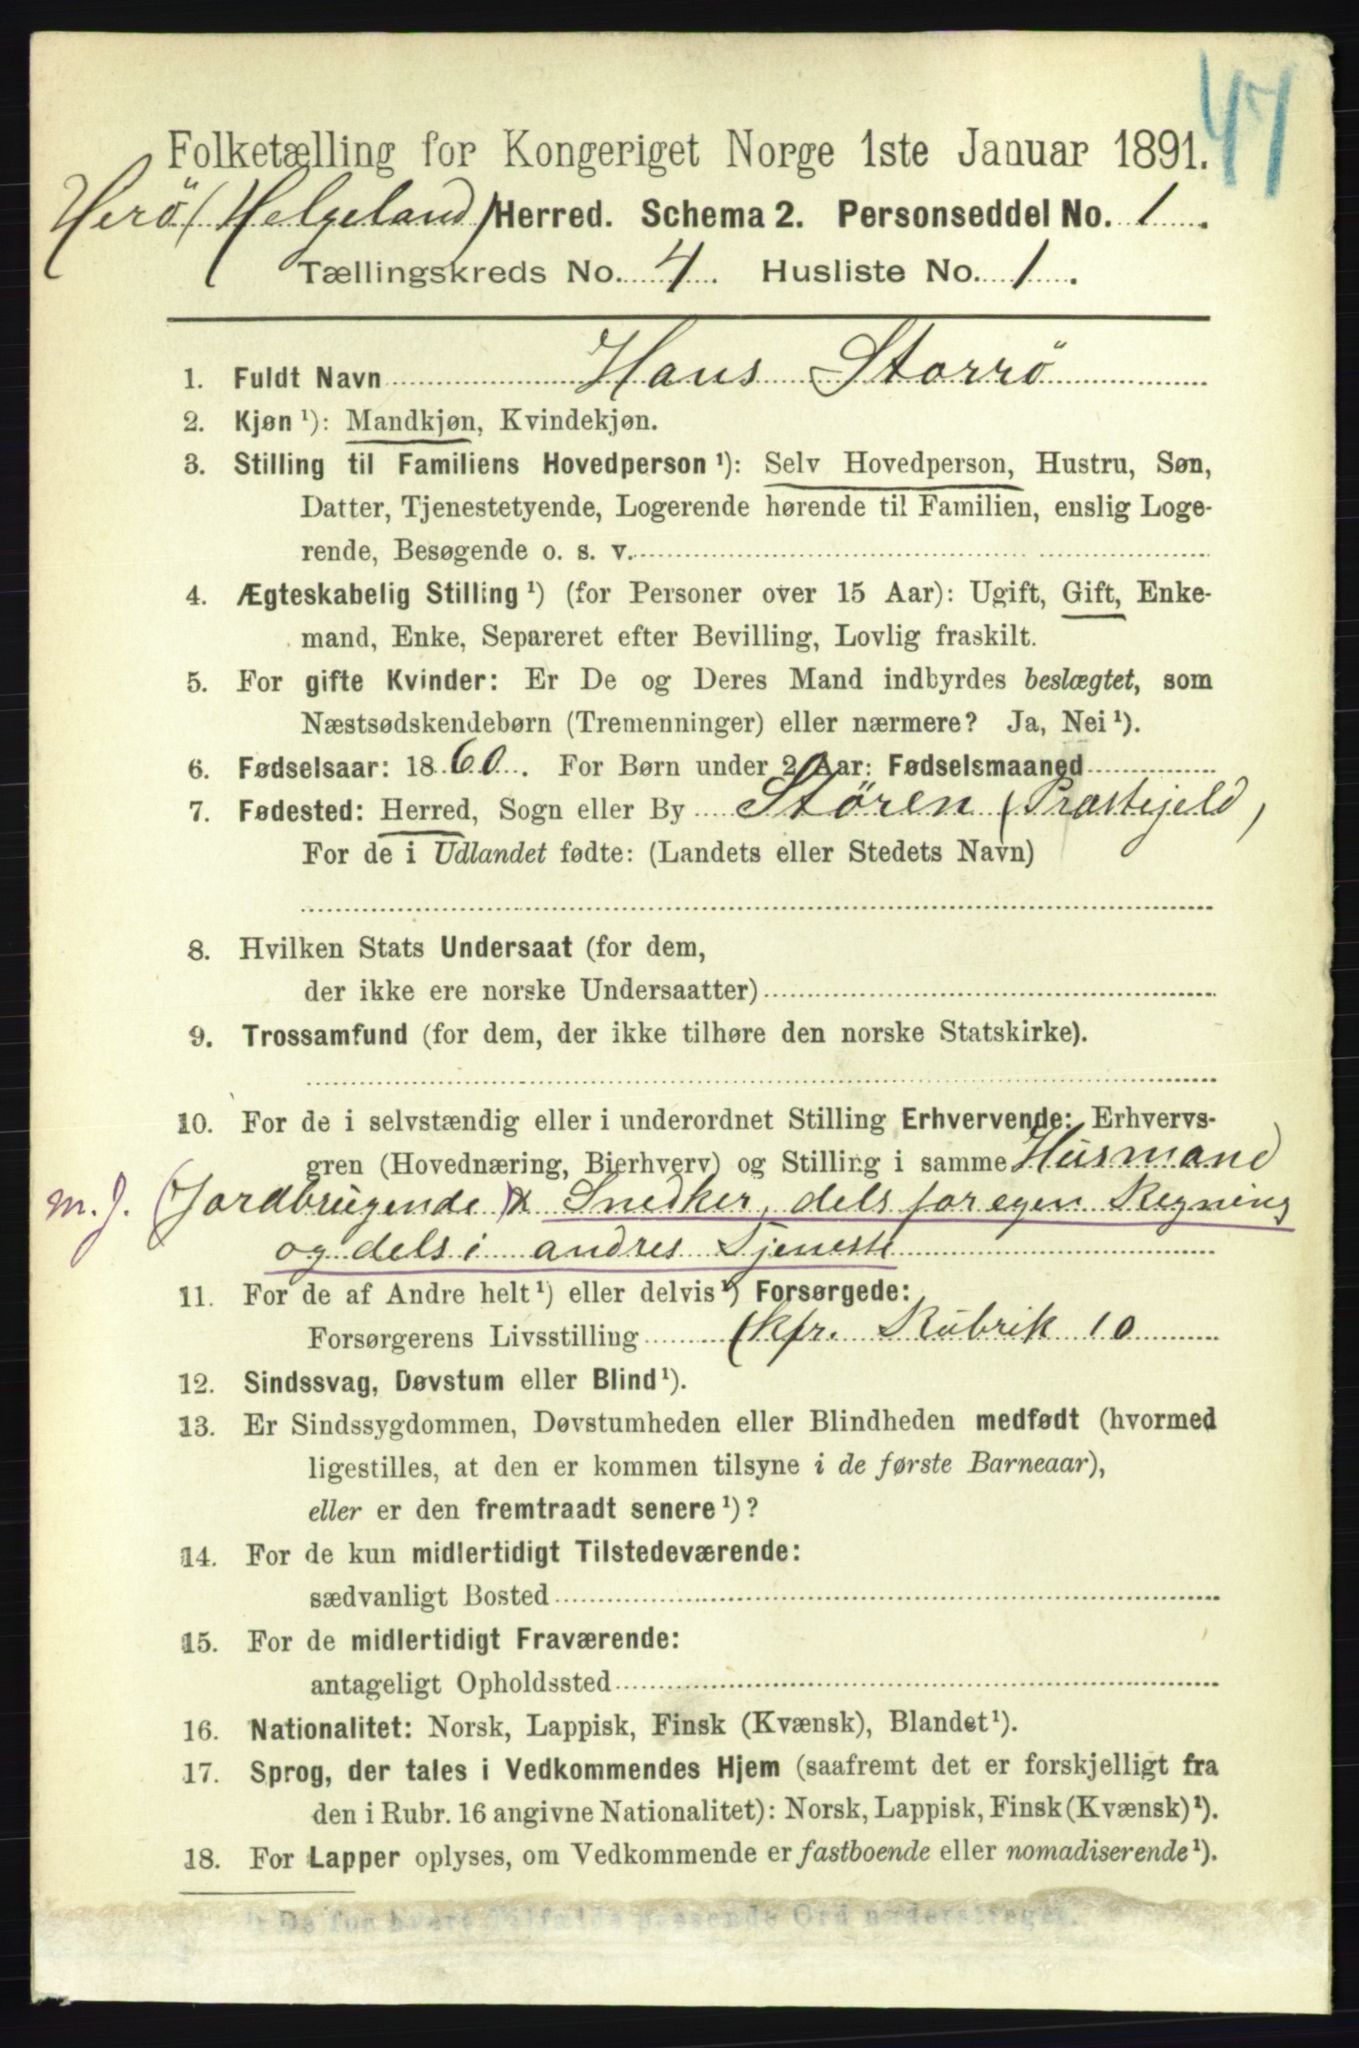 47
Folketælling for Kongeriget Norge 1ste Januar 1891.
Herö (Helgeland) Herred. Schema 2. Personseddel No. 1.
Tællingskreds No. 4. Husliste No. 1.
1. Fuldt Navn Hans Storrö
2. Kjøn ¹): Mandkjøn, Kvindekjøn.
3. Stilling til Familiens Hovedperson ¹): Selv Hovedperson, Hustru, Søn,
Datter, Tjenestetyende, Logerende hørende til Familien, enslig Loge-
rende, Besøgende o. s. v.
4. Ægteskabelig Stilling ¹) (for Personer over 15 Aar): Ugift, Gift, Enke-
mand, Enke, Separeret efter Bevilling, Lovlig fraskilt.
5. For gifte Kvinder: Er De og Deres Mand indbyrdes beslægtet, som
Næstsødskendebørn (Tremenninger) eller nærmere? Ja, Nei ¹).
6. Fødselsaar: 1860. For Børn under 2 Aar: Fødselsmaaned
7. Fødested: Herred, Sogn eller By Stören (Præstejeld)
For de i Udlandet fødte: (Landets eller Stedets Navn)
8. Hvilken Stats Undersaat (for dem,
der ikke ere norske Undersaatter)
9. Trossamfund (for dem, der ikke tilhøre den norske Statskirke).
10. For de i selvstændig eller i underordnet Stilling Erhvervende: Erhvervs-
gren (Hovednæring, Bierhverv) og Stilling i samme Husmand
m. J. (Jordbrugende) & Snedker, dels for egen Regning
og dels i andres Tjeneste
11. For de af Andre helt ¹) eller delvis ¹) Forsørgede:
Forsørgerens Livsstilling (kfr. Rubrik 10
12. Sindssvag, Døvstum eller Blind ¹).
13. Er Sindssygdommen, Døvstumheden eller Blindheden medfødt (hvormed
ligestilles, at den er kommen tilsyne i de første Barneaar),
eller er den fremtraadt senere ¹)?
14. For de kun midlertidigt Tilstedeværende:
sædvanligt Bosted
15. For de midlertidigt Fraværende:
antageligt Opholdssted
16. Nationalitet: Norsk, Lappisk, Finsk (Kvænsk), Blandet ¹).
17. Sprog, der tales i Vedkommendes Hjem (saafremt det er forskjelligt fra
den i Rubr. 16 angivne Nationalitet): Norsk, Lappisk, Finsk (Kvænsk) ¹).
18. For Lapper oplyses, om Vedkommende er fastboende eller nomadiserende ¹).
¹) De for hvert Tilfælde passende Ord understreges.